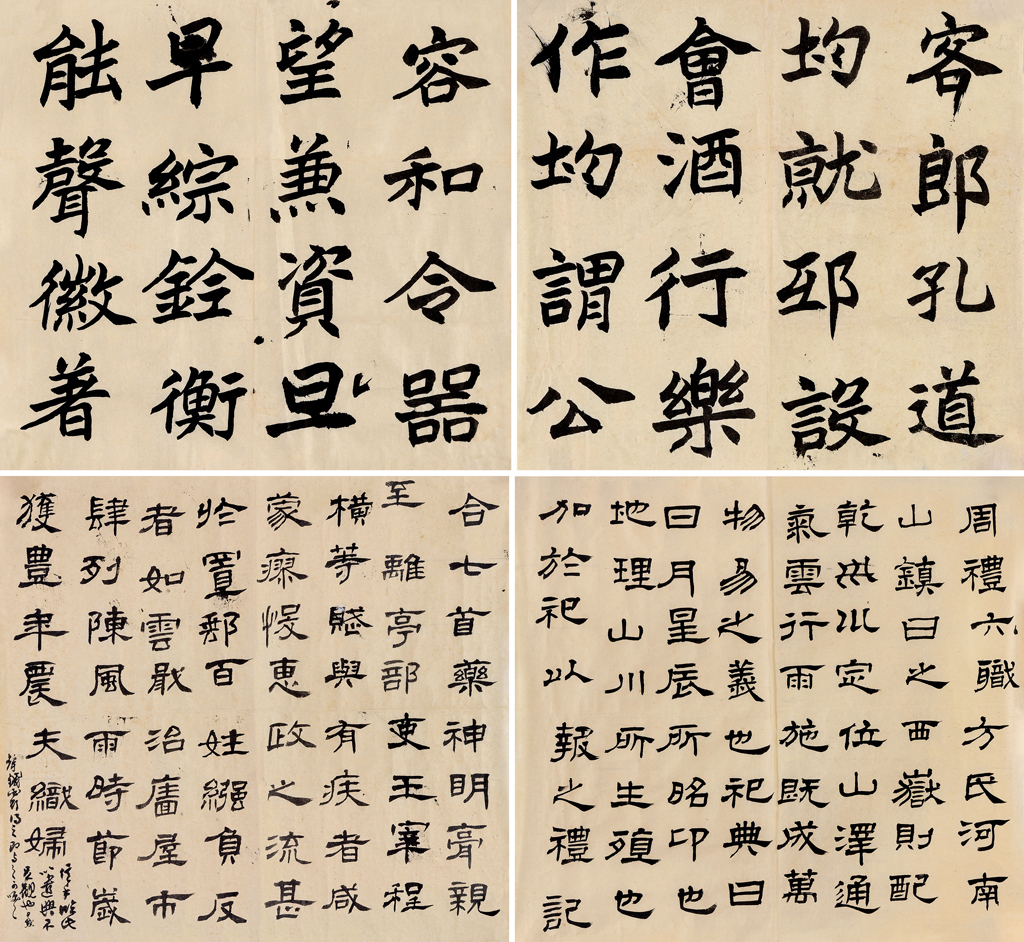 客郎孔道
均就邳設
會酒行樂
作均謂公
容和令器
望兼資旦
早綜銓衡
能聲徽著
周禮六職方氏河南
山鎮曰之西嶽則配
乾洪川定位山澤通
氣雲行雨施既成萬
物易之義也祀典曰
日月星辰所昭卬也
地理山川所生殖也
加於祀以報之禮記
合七首藥神明膏親
至離亭部吏王宰程
橫等賦與有疾者咸
蒙瘳悛惠政之流甚
於置郵百姓繈負反
者如雲戢治廧屋市
肆列陳風雨時節歲
獲豐年農夫織婦